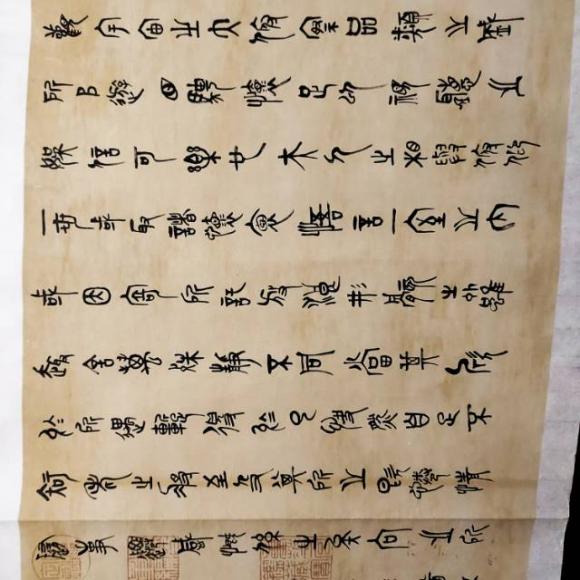 觀宇宙之大俯察品類之盛
所以遊目騁懷足以視聽之
娛信可樂也夫人之相與俯仰
一世或取諸懷抱悟言一室之內
或因寄所託放浪形骸之外雖
趣舍萬殊靜不同當其欣
於所遇暫得於己快然自足不
知老之將至及其所之既倦情
隨事遷感慨係之矣向之所